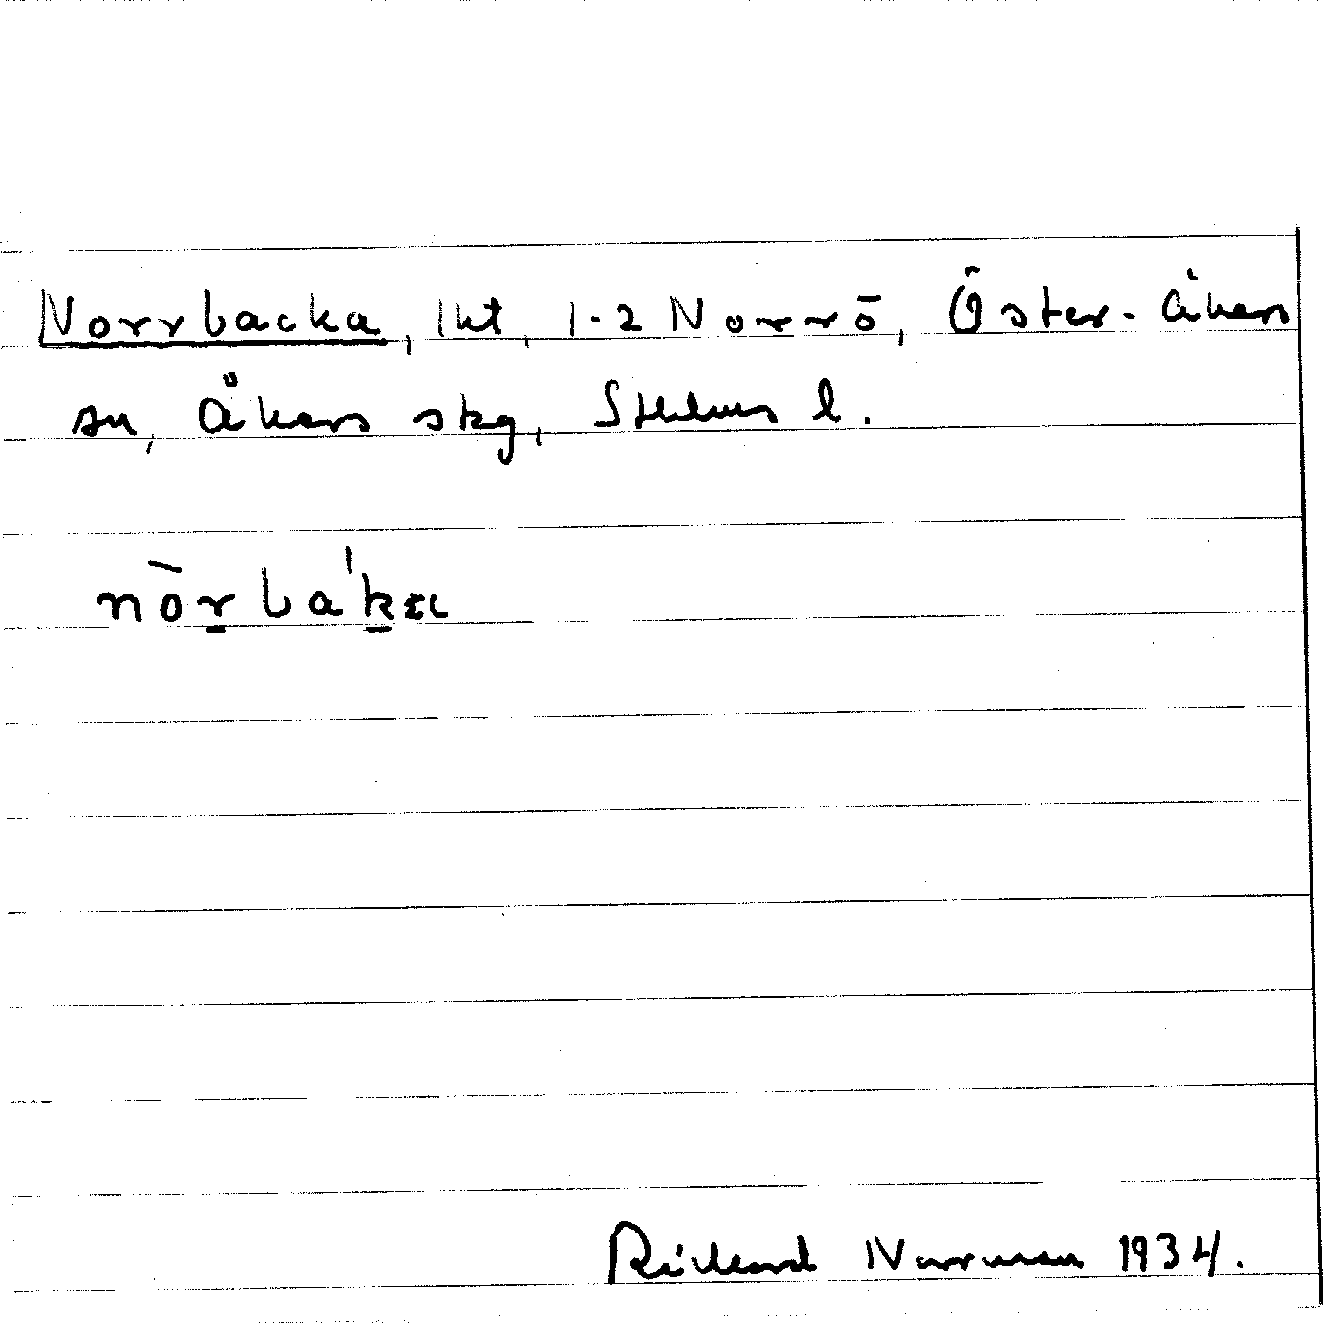 Norrbacka, lht, 1-2 Norrö, Öster-Åkers
sn, Åkers skg, Sthlms l.
nòrba'ka
Rickard Norrman 1934.